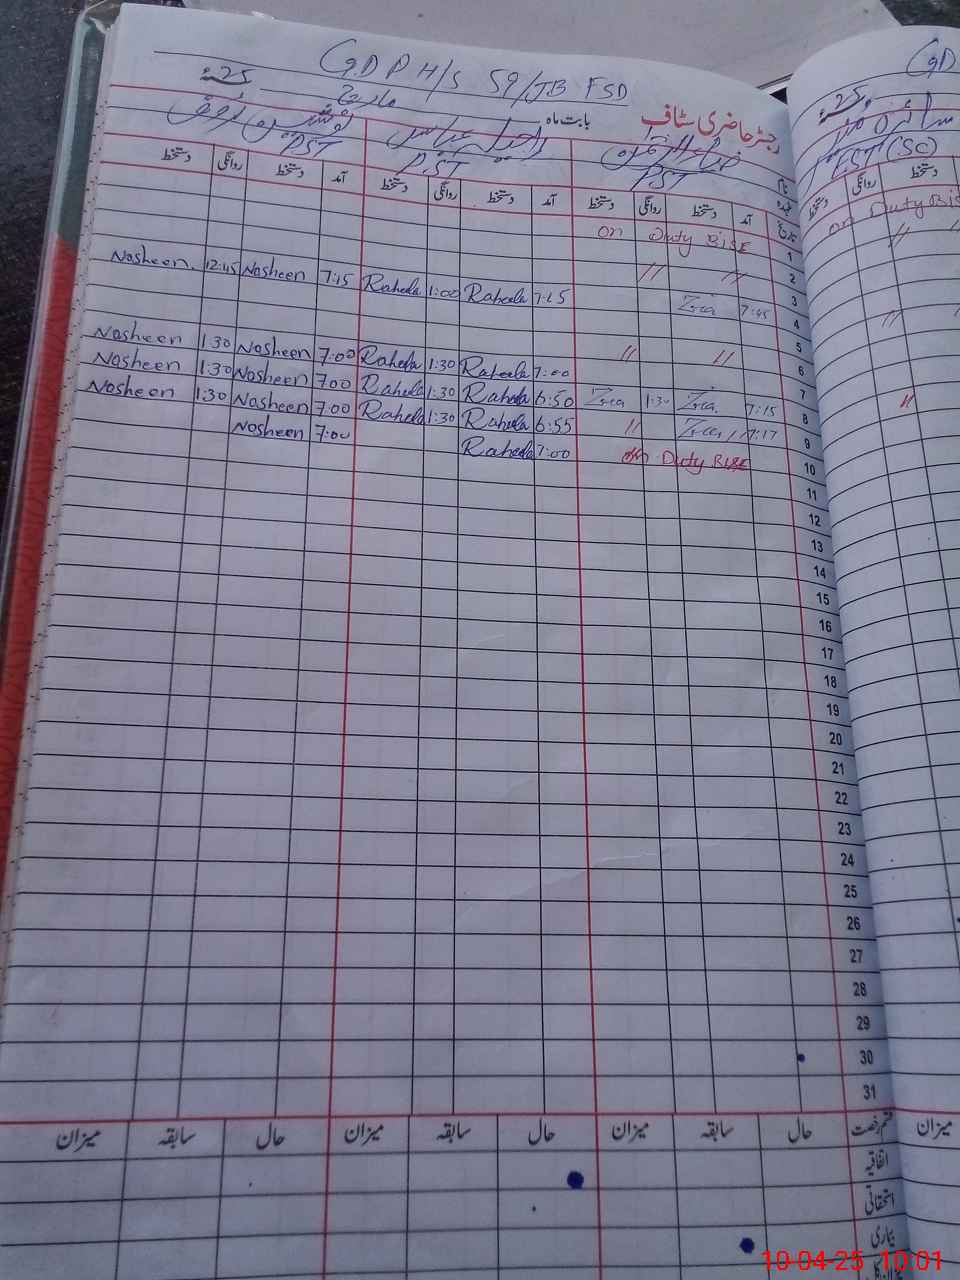 GDPH/S 59/JB FSD
رجسٹر حاضری سٹاف
بابت ماہ
مارچ
25ء
PST
PST
PST
نام
عہدہ
تاریخ
آمد دستخط روانگی دستخط آمد دستخط روانگی دستخط آمد دستخط روانگی دستخط
1 on Duty BISE
2 〃 〃
3 7:45 Zia 7:15 Raheela 1:00 Raheela 7:15 Nosheen 12:45 Nosheen.
4
5 〃 〃
6 7:00 Raheela 1:30 Raheela 7:00 Nosheen 1:30 Nosheen
7 7:15 Zia 1:30 Zia 6:50 Raheela 1:30 Raheela 7:00 Nosheen 1:30 Nosheen
8 7:17 Zia 〃 6:55 Raheela 1:30 Raheela 7:00 Nosheen 1:30 Nosheen
9 on Duty BISE 7:00 Raheela 7:00 Nosheen
10
11
12
13
14
15
16
17
18
19
20
21
22
23
24
25
26
27
28
29
30
31
قسم رخصت حال سابقہ میزان حال سابقہ میزان حال سابقہ میزان
اتفاقیہ
استحقاقی
بیماری
25ء
EST (SC)
روانگی دستخط
دستخط
on Duty BIS
〃 〃
〃
〃
میزان
10-04-25 10:01